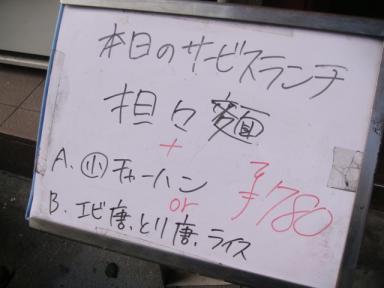 本日のサービスランチ
担々麺
+
A. ㋛ チャーハン
or
B. エビ唐、とり唐、ライス
¥780